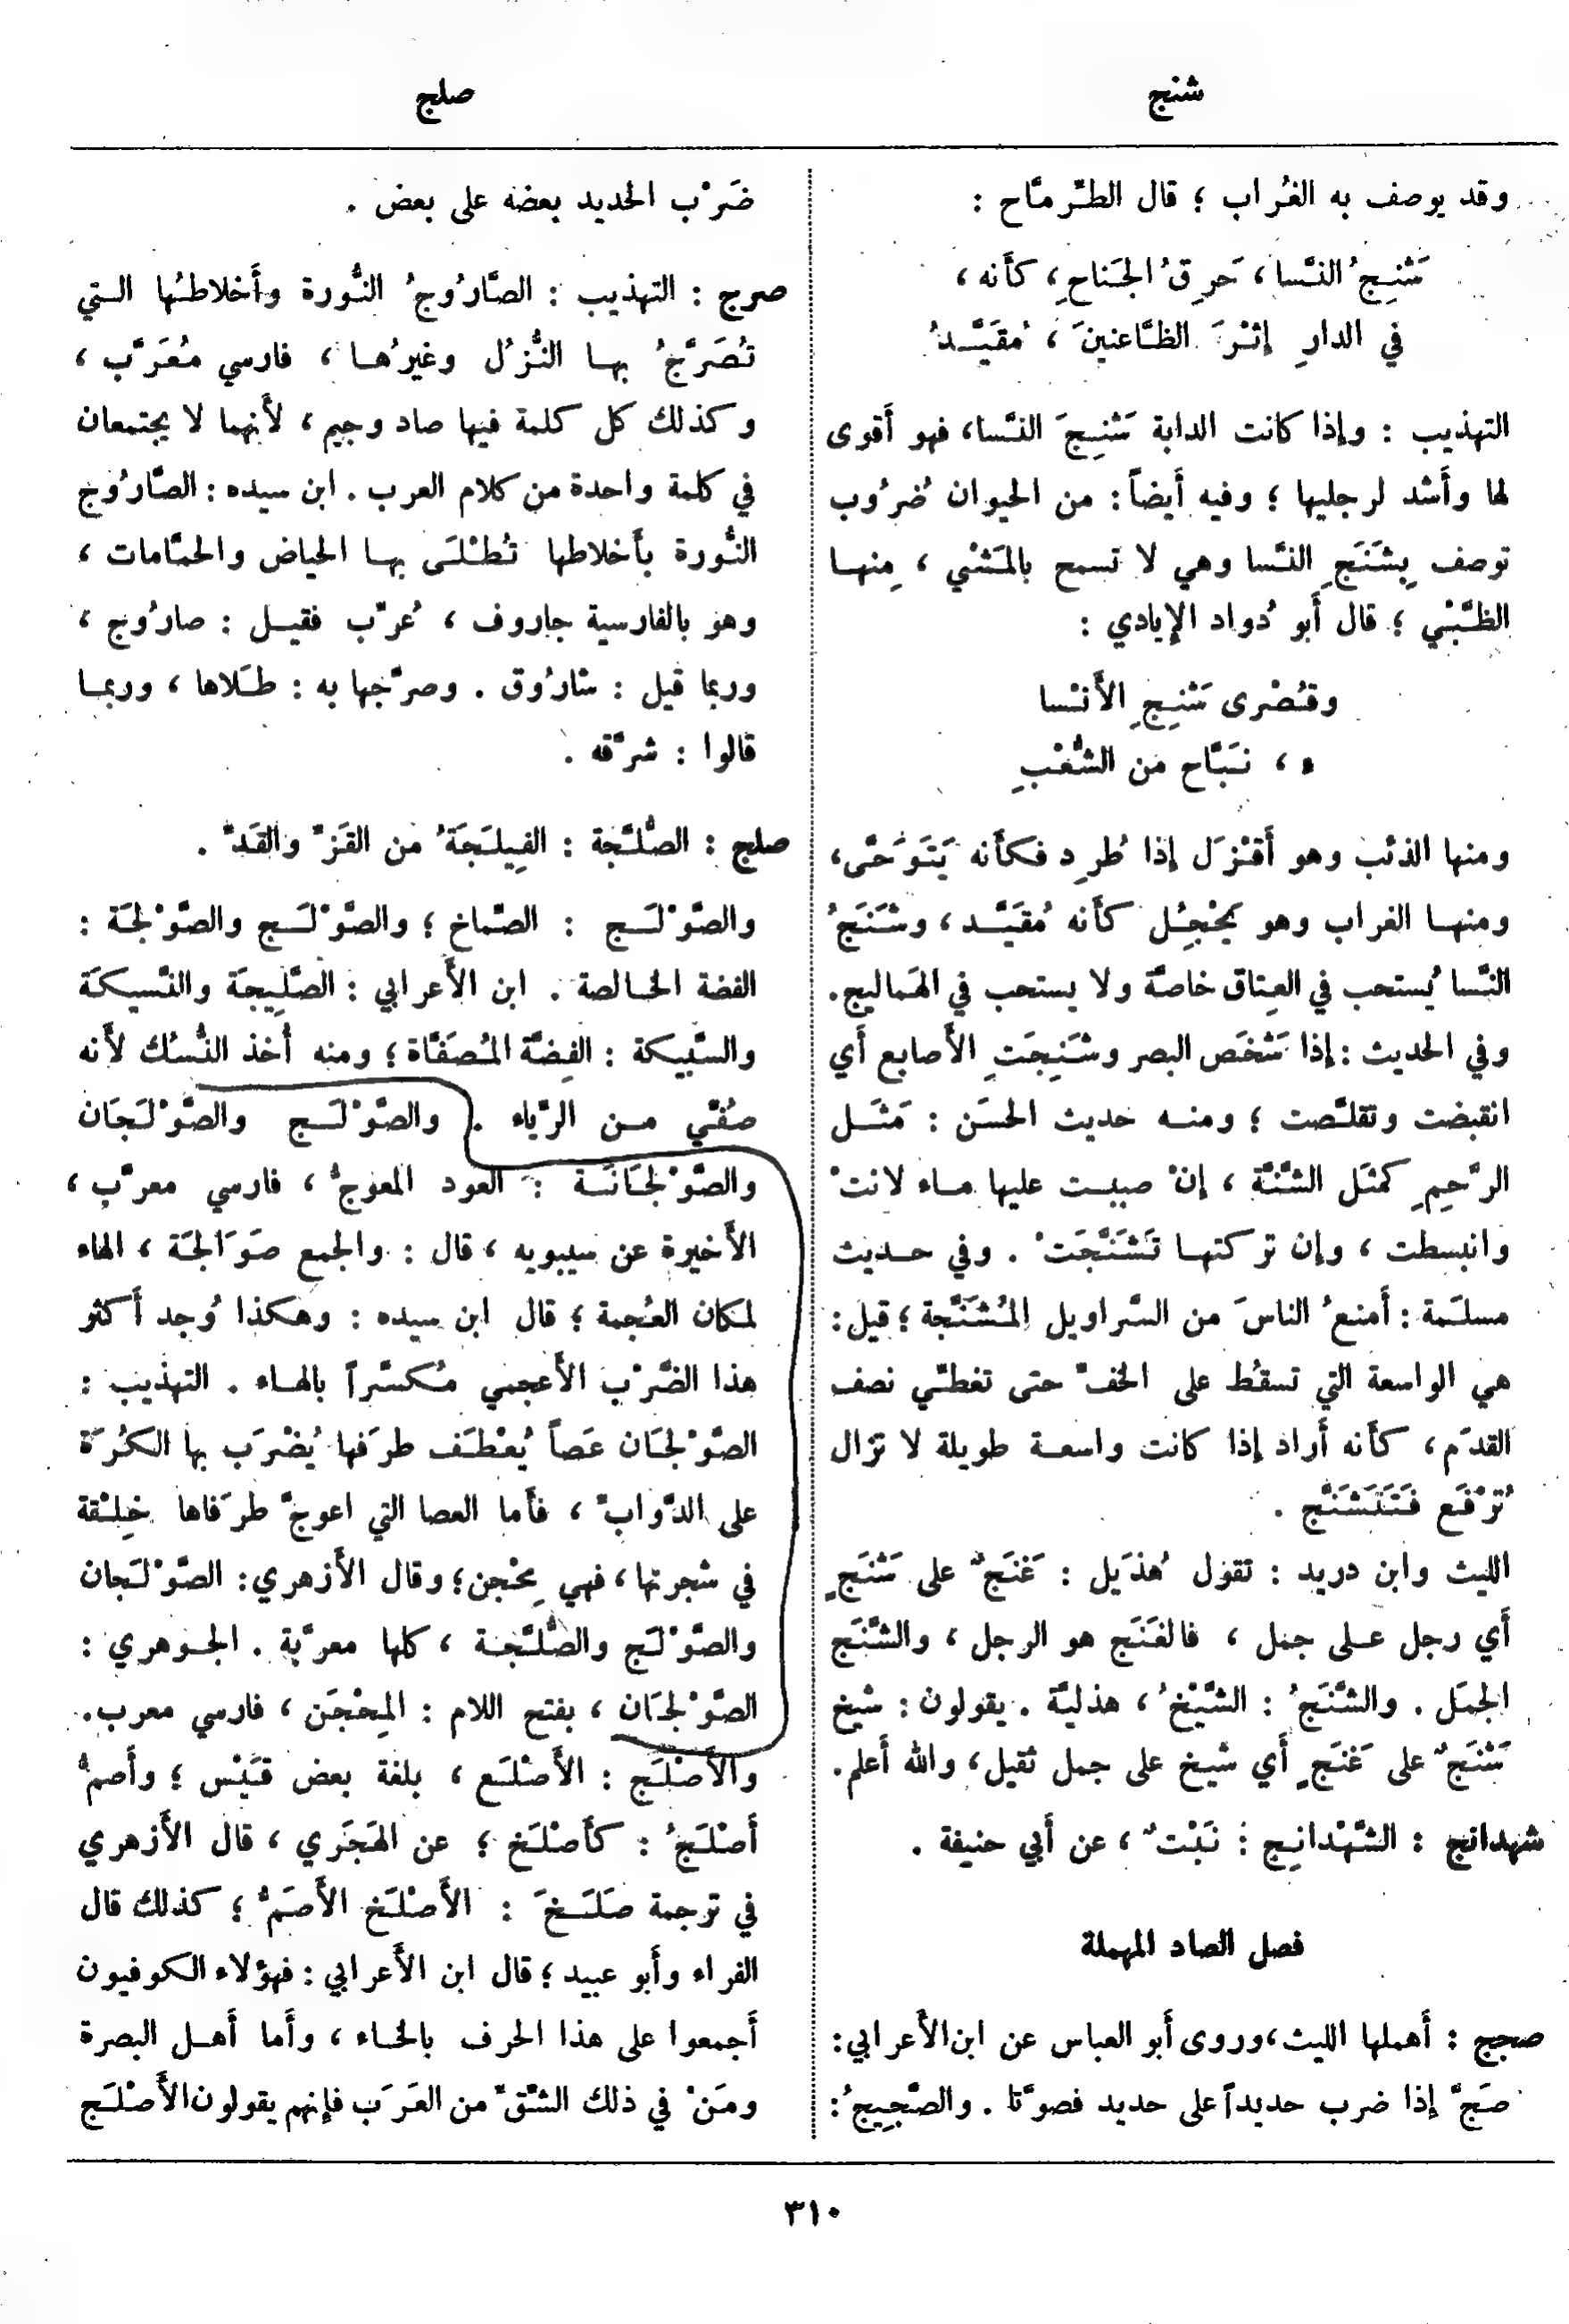 شنج
صلج
وقد يوصف به الغُراب ؛ قال الطِّرِمَّاح :
شَنِجُ النَّسا ، حَرِقُ الجَناحِ ، كأَنه ،
في الدارِ إثْرَ الظَّاعنينَ ، مُقَيَّدُ
التهذيب : وإذا كانت الدابة شَنِجَ النَّسا ، فهو أَقوى
لها وأَشد لرجليها ؛ وفيه أَيضاً : من الحيوان ضُرُوب
توصف بِشَنَجِ النَّسا وهي لا تسمح بالمَشْي ، مِنهـا
الظَّبْي ؛ قال أَبو دُواد الإيادي :
وقُصْرى شَنِجِ الأَنْسا
ء ، نَبَّاح من الشُّعْبِ
ومنها الذئب وهو أَقْزَل إذا طُرِد فكأَنه يَتَوَحَّى ،
ومنهـا الغراب وهو يَحْجِل كأَنه مُقَيَّـد ، وشَنَجُ
النَّسا يُستحب في العِتاق خاصَّة ولا يستحب في الهَماليج .
وفي الحديث : إذا شَخَص البصر وشَنِجَتِ الأَصابع أَي
انقبضت وتقلَّصت ؛ ومنـه حديث الحسَن : مَثَـل
الرَّحِمِ كمثَل الشَّنَّة ، إنْ صببـت عليها مـاء لانتْ
وانبسطت ، وإن تركتهـا تَشَنَّجَتْ . وفي حـديث
مسلَمة : أَمنعُ الناسَ من السَّراويل المُشَنَّجة ؛ قيل :
هي الواسعة التي تسقُط على الخفّ حتى تغطِّي نصف
القدَم ، كأَنه أَراد إذا كانت واسعـة طويلة لا تزال
تُرْفَع فَتَتَشَنَّج .
الليث وابن دريد : تقول هُذَيل : غَنَجٌ على شَنَجٍ
أَي رجل عـلى جمل ، فالغَنَج هو الرجل ، والشَّنَج
الجمَل . والشَّنَجُ : الشَّيْخُ ، هذليَّة . يقولون : شيخ
شَنَجٌ على غَنَجٍ أَي شيخ على جمل ثقيل ، والله أعلم .
شهدانج : الشَّهْدانِج : نَبْتٌ ، عن أَبي حنيفة .
فصل الصاد المهملة
صجج : أَهملها الليث ، وروى أَبو العباس عن ابن الأَعرابي :
صَجَّ إذا ضرب حديداً على حديد فصوَّتا . والصَّجِيجُ :
ضَرْب الحديد بعضه على بعض .
صرج : التهذيب : الصَّارُوجُ النُّورة وأَخلاطُها الـتي
تُصَرَّجُ بهـا النُّزُل وغيرُهـا ، فارسي مُعَرَّب ،
وكذلك كل كلمة فيها صاد وجيم ، لأَنهما لا يجتمعان
في كلمة واحدة من كلام العرب . ابن سيده : الصَّارُوج
النُّورة بأَخلاطها تُطْلَى بهـا الحياض والحمَّامات ،
وهو بالفارسية جاروف ، عُرِّب فقيـل : صارُوج ،
وربما قيل : شارُوق . وصرَّجها به : طَلاها ، وربمـا
قالوا : شرَّقه .
صلج : الصُّلَّجة : الفِيلَجَةُ من القَزِّ والقَدِّ .
والصَّوْلَـج : الصِّماخ ؛ والصَّوْلَـج والصَّوْلَجَة :
الفضة الخـالصة . ابن الأَعرابي : الصَّلِيجَة والنَّسيكَة
والسَّبِيكة : الفِضَّة المُصَفَّاة ؛ ومنه أُخذ النُّسُك لأَنه
صُفِّي مـن الرِّياء . والصَّوْلَـج والصَّوْلَجَان
والصَّوْلَجَانَـة : العود المعوجُّ ، فارسي معرَّب ،
الأَخيرة عن سيبويه ، قال : والجمع صَوَالجَة ، الهاء
لمكان العُجمة ؛ قال ابن سيده : وهكذا وُجد أَكثر
هذا الضَّرْب الأَعجمي مُكسَّراً بالهـاء . التهذيب :
الصَّوْلَجَان عَصاً يُعْطَف طرَفها يُضْرَب بها الكُرَة
على الدَّوابِّ ، فأَما العصا التي اعوجَّ طرَفاها خِلْقة
في شجرتها ، فهي مِحْجن ؛ وقال الأَزهري : الصَّوْلَجان
والصَّوْلَج والصُّلَّجـة ، كلها معرَّبة . الجـوهري :
الصَّوْلَجَان ، بفتح اللام : المِحْجَن ، فارسي معرب .
والأَصْلَج : الأَصْلَع ، بلغة بعض قَيْس ؛ وأَصمُّ
أَصْلَجُ : كأَصْلَخ ؛ عن الهَجَري ، قال الأَزهري
في ترجمة صَلَـخَ : الأَصْلَخ الأَصَمُّ ؛ كذلك قال
الفراء وأَبو عبيد ؛ قال ابن الأَعرابي : فهؤلاء الكوفيون
أَجمعوا على هذا الحرف بالخـاء ، وأَما أَهـل البصرة
ومَنْ في ذلك الشِّقِّ من العَرَب فإنهم يقولون الأَصْلَج
٣١٠